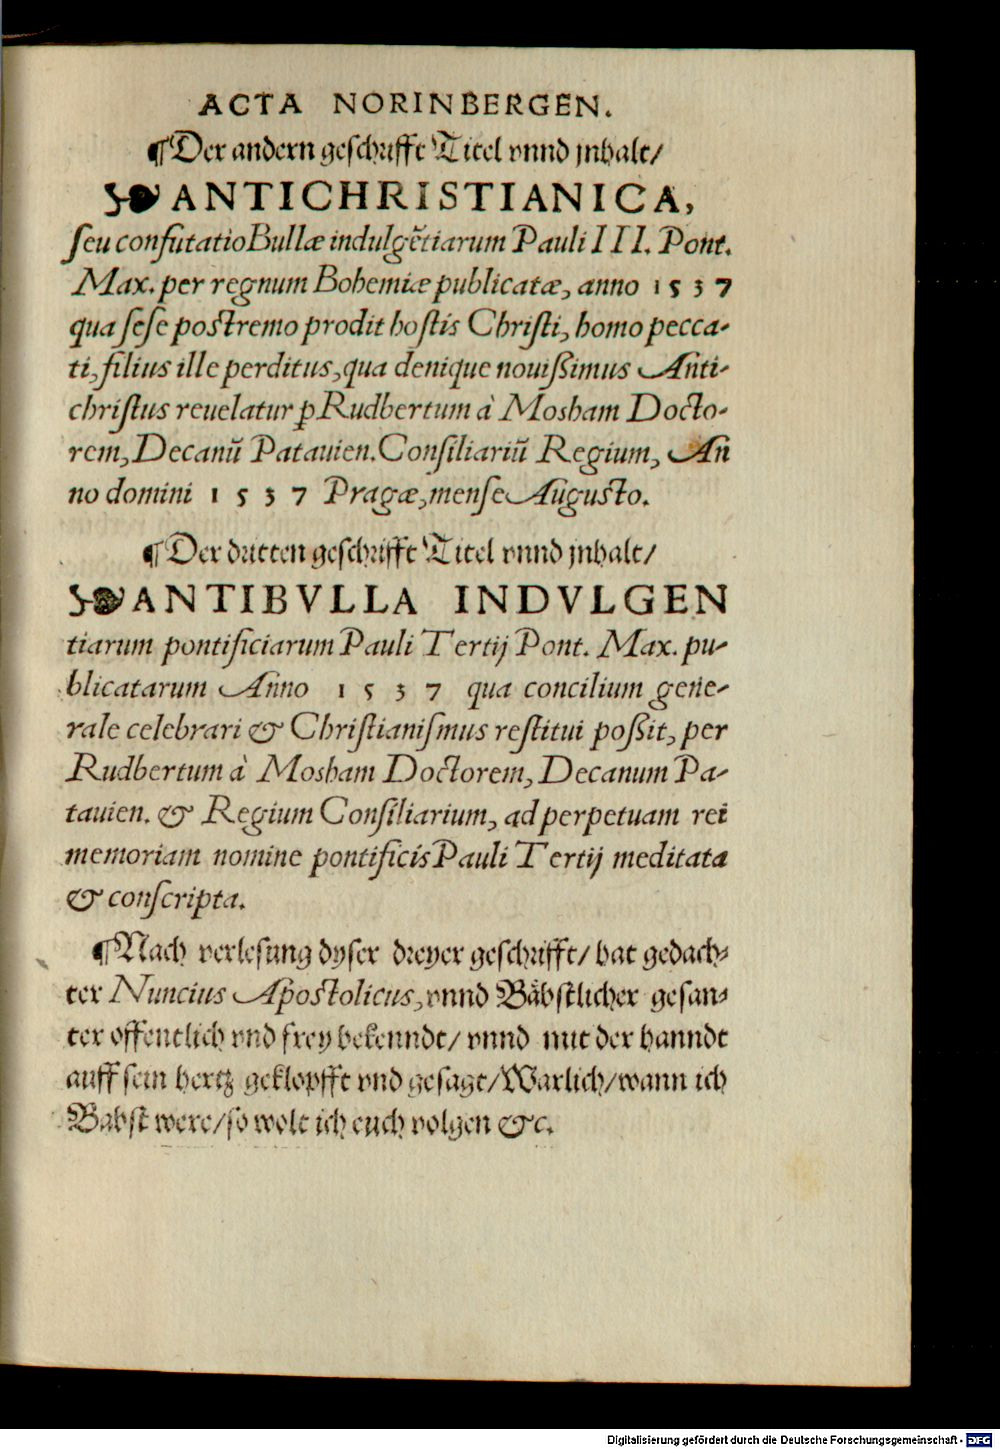 ACTA NORINBERGEN.
¶Der andern geschrifft Titel vnnd jnhalt/
❧ANTICHRISTIANICA,
seu confutatio Bullæ indulgẽtiarum Pauli III. Pont.
Max. per regnum Bohemiæ publicatæ, anno 1537
qua sese postremo prodit hostis Christi, homo pecca-
ti, filius ille perditus, qua denique nouißimus Anti-
christus reuelatur ꝑ Rudbertum à Mosham Docto-
rem, Decanũ Patauien. Consiliariũ Regium, An
no domini 1537 Pragæ, mense Augusto.
¶Der dritten geschrifft Titel vnnd jnhalt/
❧ANTIBVLLA INDVLGEN
tiarum pontificiarum Pauli Tertij Pont. Max. pu-
blicatarum Anno 1537 qua concilium gene-
rale celebrari & Christianismus restitui poßit, per
Rudbertum à Mosham Doctorem, Decanum Pa-
tauien. & Regium Consiliarium, ad perpetuam rei
memoriam nomine pontificis Pauli Tertij meditata
& conscripta.
¶Nach verlesung dyser dreyer geschrifft/ hat gedach-
ter Nuncius Apostolicus, vnnd Bäbstlicher gesan-
ter offentlich vnd frey bekenndt/ vnnd mit der hanndt
auff sein hertz geklopfft vnd gesagt/ Warlich/ wann ich
Babst were/ so wolt ich euch volgen &c.
Digitalisierung gefördert durch die Deutsche Forschungsgemeinschaft - DFG